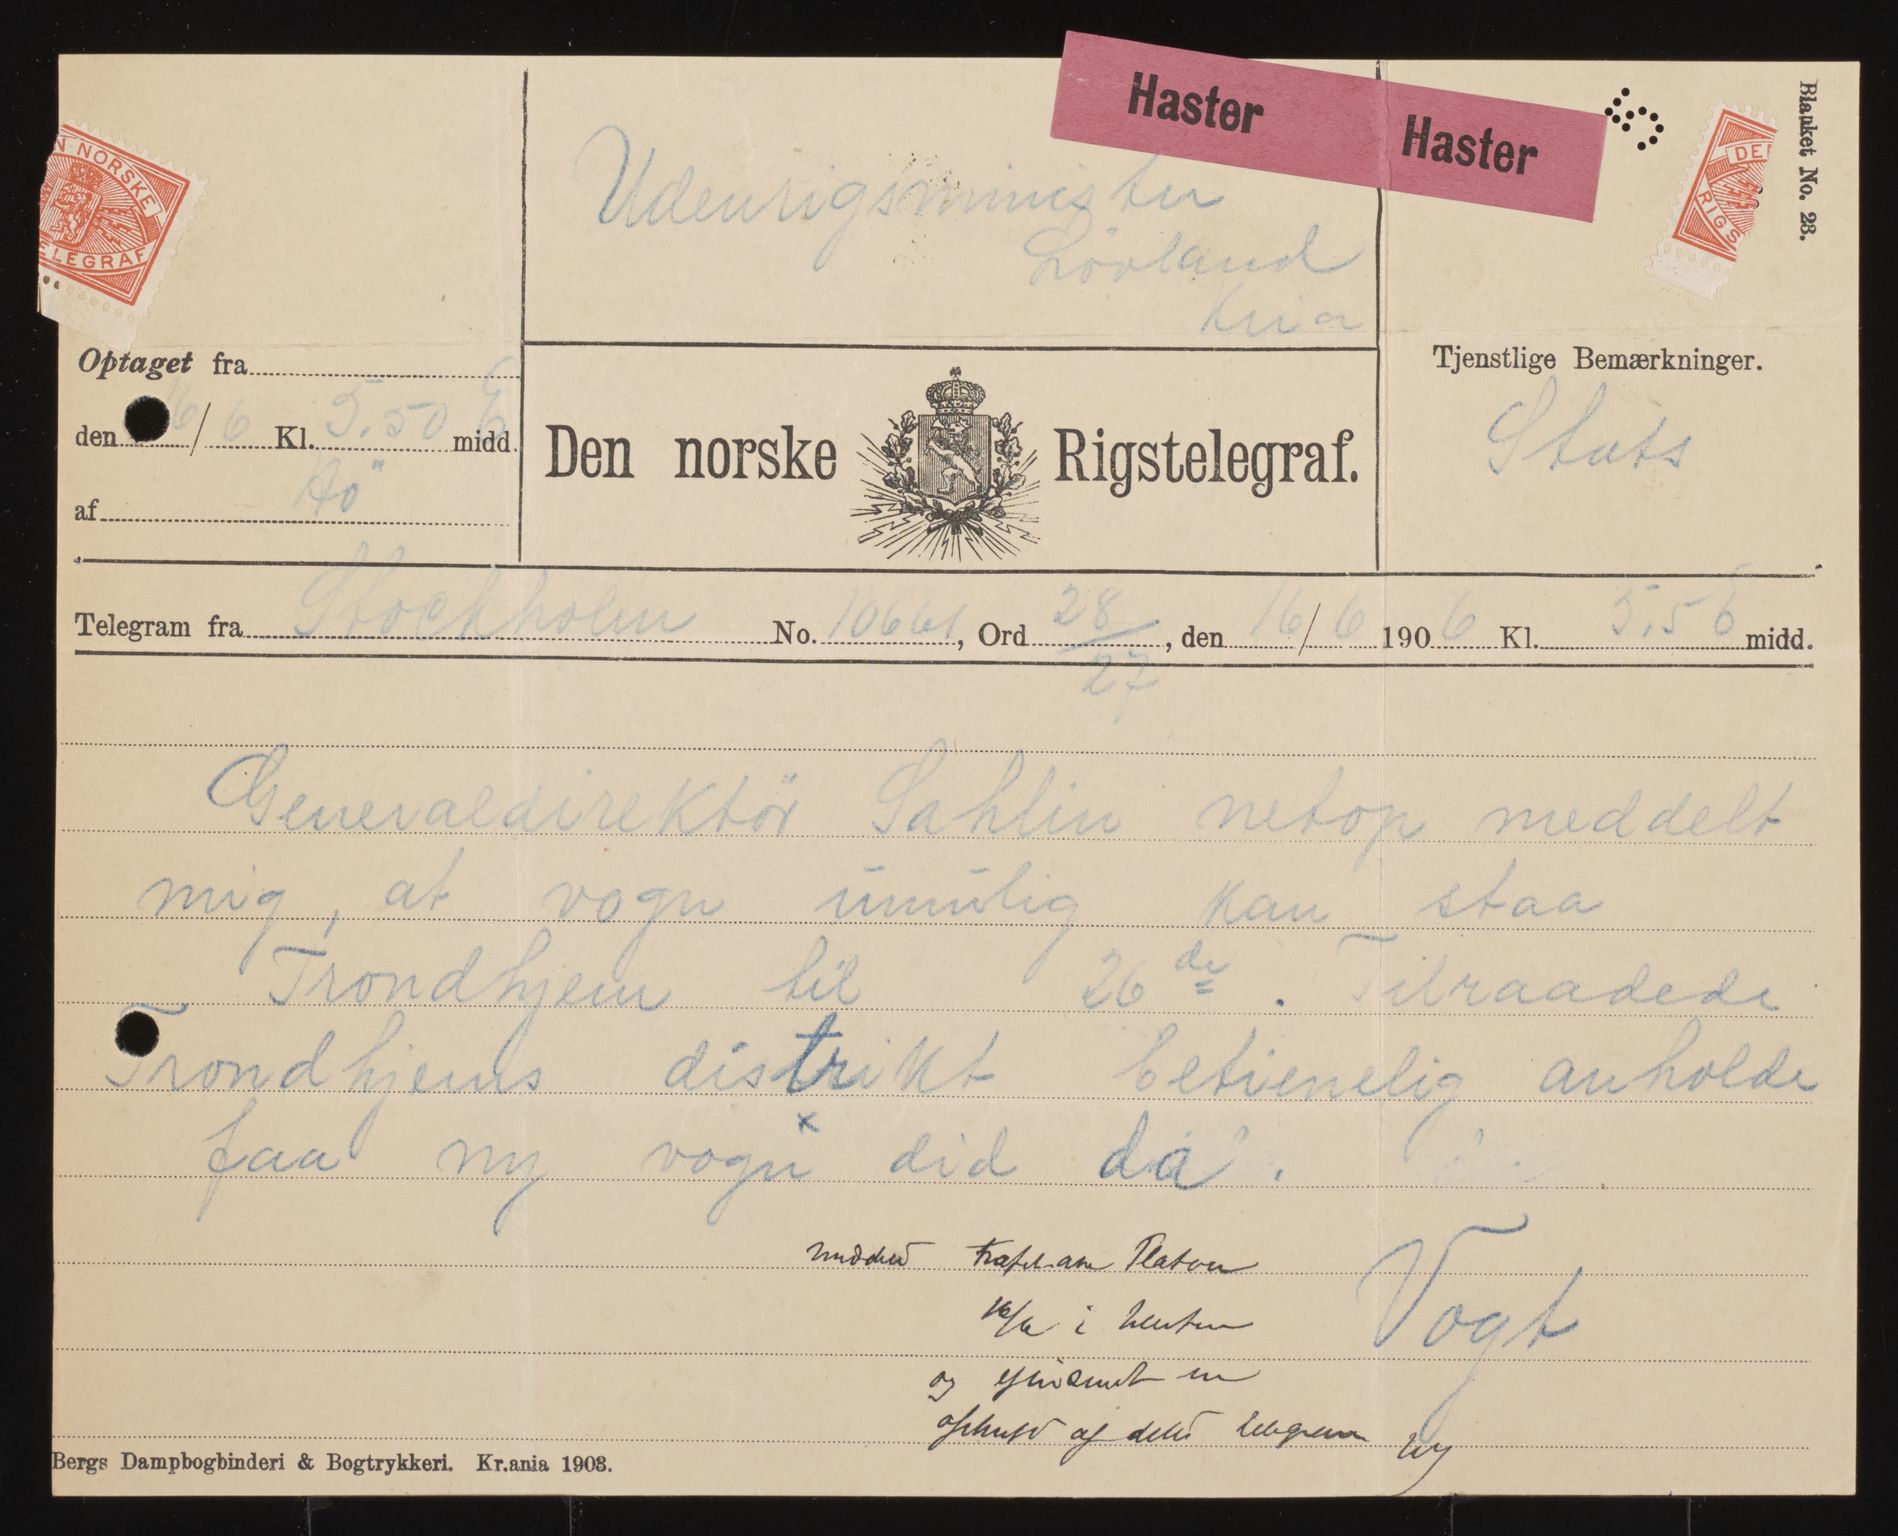 Haster Haster
Blanket No. 23.
N NORSKE
ELEGRAF
DEN
RIGS
Udenrigsminister
Lövland
Kria
Optaget fra
den 16/6 Kl. 5.50 E midd.
af Aö
Den norske Rigstelegraf.
Tjenstlige Bemærkninger.
Stats
Telegram fra Stockholm No. 10661, Ord 28/27, den 16/6 1906 Kl. 5.56 midd.
Generaldirektör Sahlin netop meddelt
mig, at vogn umulig kan staa
Trondhjem til 26de. Tilraadede
Trondhjems distrikt betienelig anholde
faa ny vogn did da.
Vogt
meddelt Platou
16/6 i
og en
afskrift af dette telegram
Bergs Dampbogbinderi & Bogtrykkeri. Kr.ania 1903.